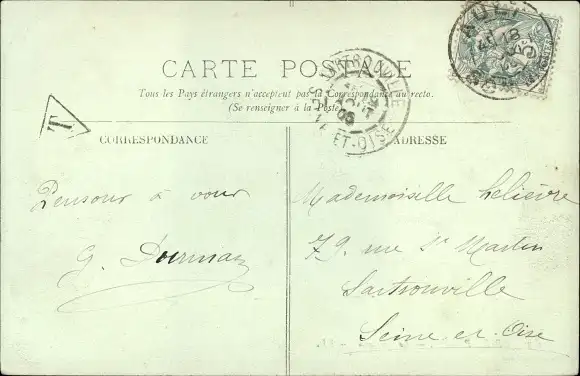 CARTE POSTALE
Tous les Pays étrangers n'acceptent pas la Correspondance au recto.
(Se renseigner à la Poste)
T
CORRESPONDANCE
Pensons à vous
G. Dourman
ADRESSE
Mademoiselle Lelièvre
79. rue St Martin
Sartrouville
Seine et Oise
SARTROUVILLE
05
ET-OISE